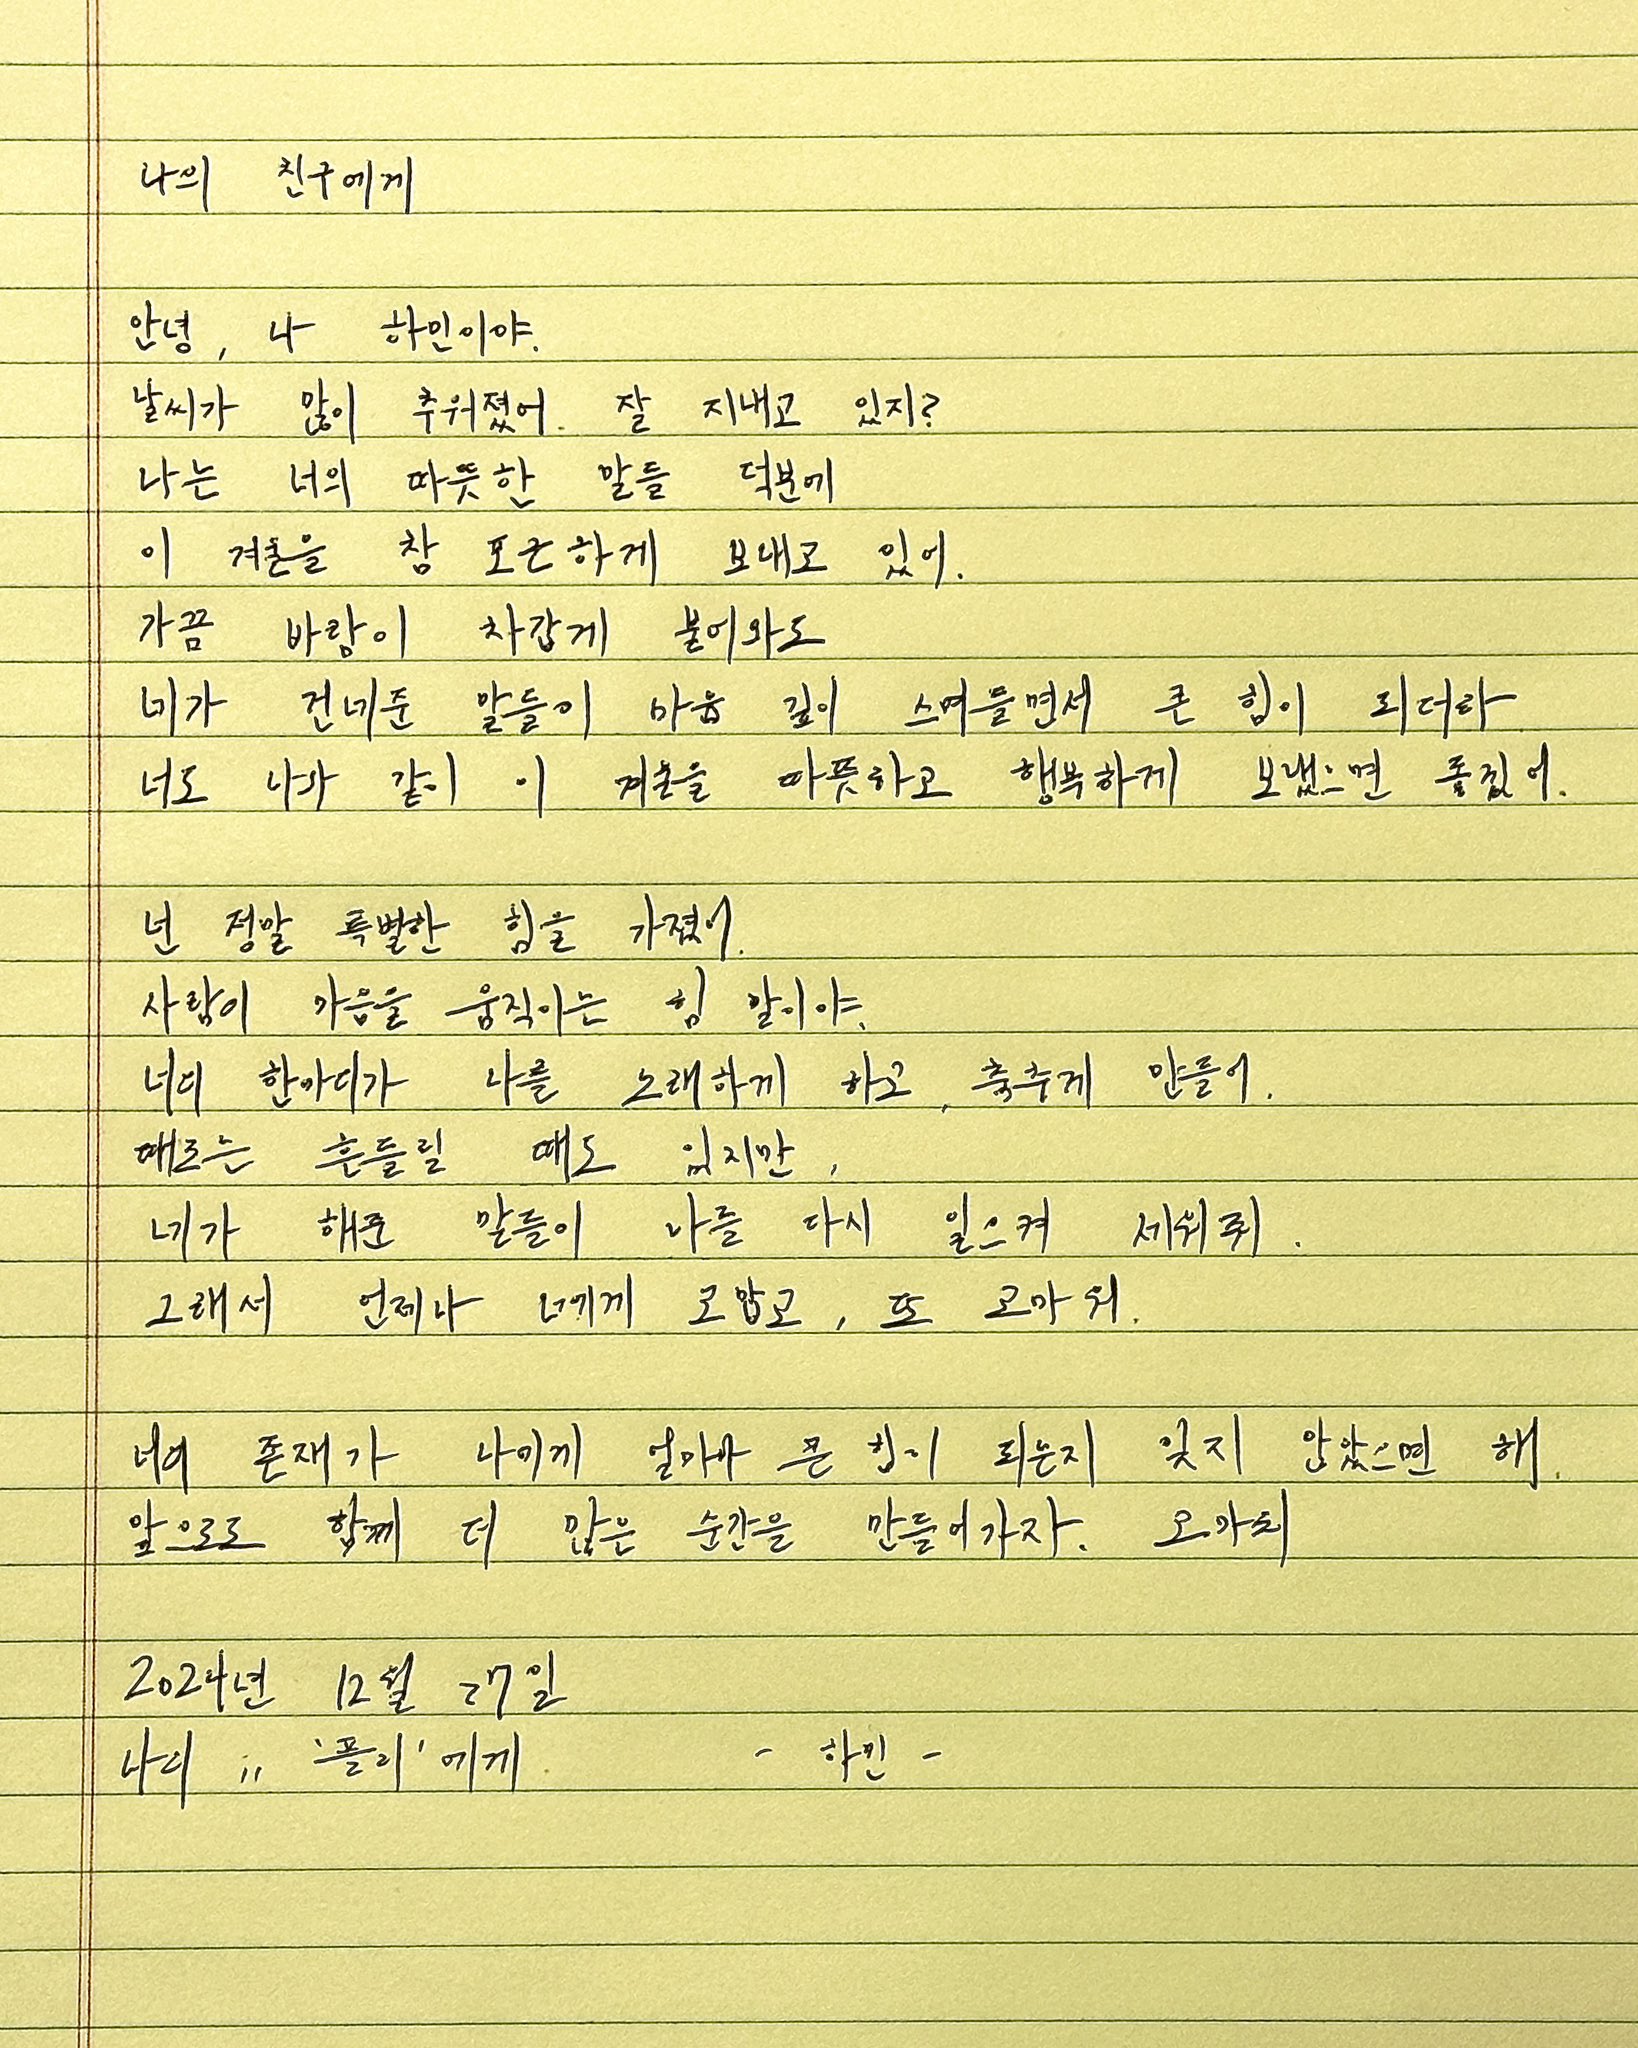 나의 친구에게
안녕, 나 하민이야.
날씨가 많이 추워졌어. 잘 지내고 있지?
나는 너의 따뜻한 말들 덕분에
이 겨울을 참 포근하게 보내고 있어.
가끔 바람이 차갑게 불어와도
네가 건네준 말들이 마음 깊이 스며들면서 큰 힘이 되더라
너도 나와 같이 이 겨울을 따뜻하고 행복하게 보냈으면 좋겠어.
넌 정말 특별한 힘을 가졌어.
사람의 마음을 움직이는 힘 말이야.
너의 한마디가 나를 노래하게 하고, 춤추게 만들어.
때로는 흔들릴 때도 있지만,
네가 해준 말들이 나를 다시 일으켜 세워줘.
그래서 언제나 너에게 고맙고, 또 고마워.
너의 존재가 나에게 얼마나 큰 힘이 되는지 잊지 않았으면 해.
앞으로도 함께 더 많은 순간을 만들어가자. 고마워
2024년 12월 27일
나의 ;; '플리'에게 - 하민 -